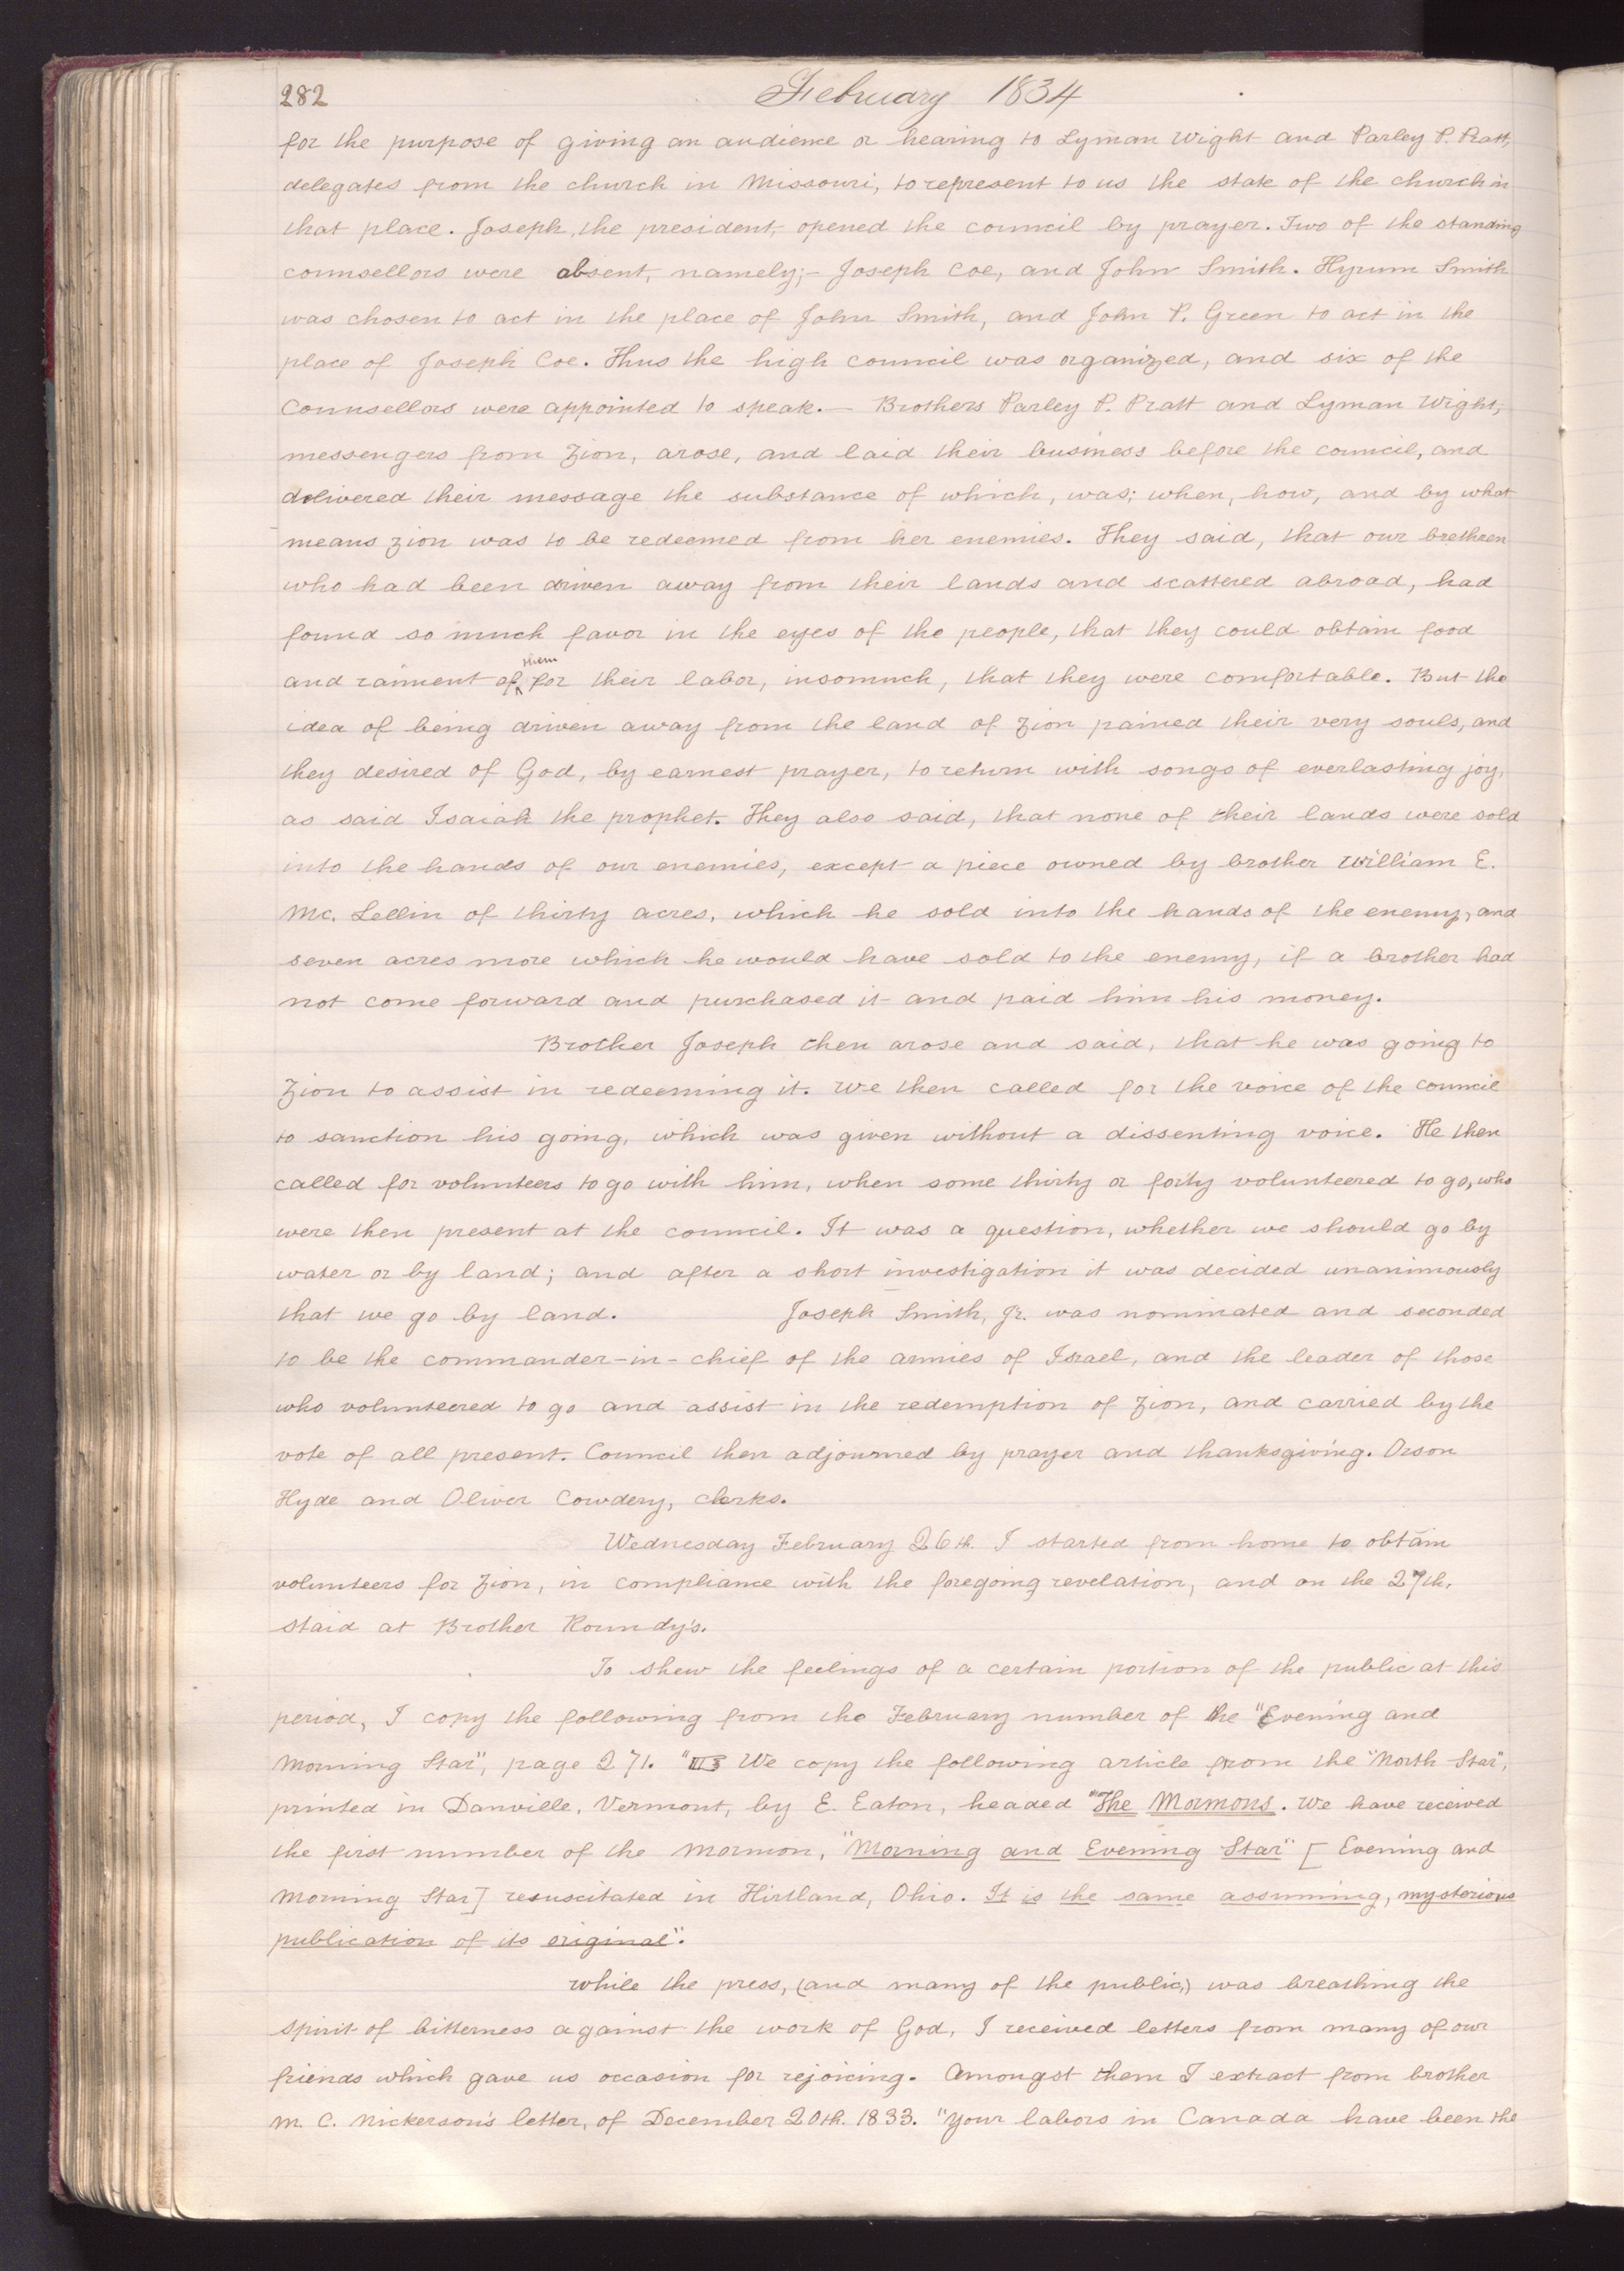 282
February 1834
for the purpose of giving an audience or hearing to Lyman Wight and Parley P. Pratt,
delegates from the church in Missouri, to represent to us the state of the church in
that place. Joseph, the president, opened the council by prayer. Two of the standing
counsellors were absent, namely;- Joseph Coe, and John Smith. Hyrum Smith
was chosen to act in the place of John Smith, and John P. Green to act in the
place of Joseph Coe. Thus the high council was organized, and six of the
Counsellors were appointed to speak.— Brothers Parley P. Pratt and Lyman Wight,
messengers from Zion, arose, and laid their business before the council, and
delivered their message the substance of which, was; when, how, and by what
means zion was to be redeemed from her enemies. They said, that our brethren
who had been driven away from their lands and scattered abroad, had
found so much favor in the eyes of the people, that they could obtain food
and raiment of them for their labor, insomuch, that they were comfortable. But the
idea of being driven away from the land of Zion pained their very souls, and
they desired of God, by earnest prayer, to return with songs of everlasting joy,
as said Isaiah the prophet. They also said, that none of their lands were sold
into the hands of our enemies, except a piece owned by brother William E.
Mc. Lellin of thirty acres, which he sold into the hands of the enemy, and
seven acres more which he would have sold to the enemy, if a brother had
not come forward and purchased it and paid him his money.
Brother Joseph then arose and said, that he was going to
Zion to assist in redeeming it. We then called for the voice of the council
to sanction his going, which was given without a dissenting voice. He then
called for volunteers to go with him, when some thirty or forty volunteered to go, who
were then present at the council. It was a question, whether we should go by
water or by land; and after a short investigation it was decided unanimously
that we go by land. Joseph Smith, Jr. was nominated and seconded
to be the commander-in-chief of the armies of Israel, and the leader of those
who volunteered to go and assist in the redemption of Zion, and carried by the
vote of all present. Council then adjourned by prayer and thanksgiving. Orson
Hyde and Oliver Cowdery, clerks.
Wednesday February 26th. I started from home to obtain
volunteers for Zion, in compliance with the foregoing revelation, and on the 27th.
staid at Brother Roundy's.
To shew the feelings of a certain portion of the public at this
period, I copy the following from the February number of the "Evening and
Morning Star", page 271. " We copy the following article from the "North Star",
printed in Danville, Vermont, by E. Eaton, headed "The Mormons. We have received
the first number of the Mormon, "Morning and Evening Star" [Evening and
Morning Star] resuscitated in Hirtland, Ohio. It is the same assuming, mysterious
publication of its original".
While the press, (and many of the public,) was breathing the
spirit of bitterness against the work of God, I received letters from many of our
friends which gave us occasion for rejoicing. Amongst them I extract from brother
M. C. Nickerson's letter, of December 20th. 1833. "Your labors in Canada have been the